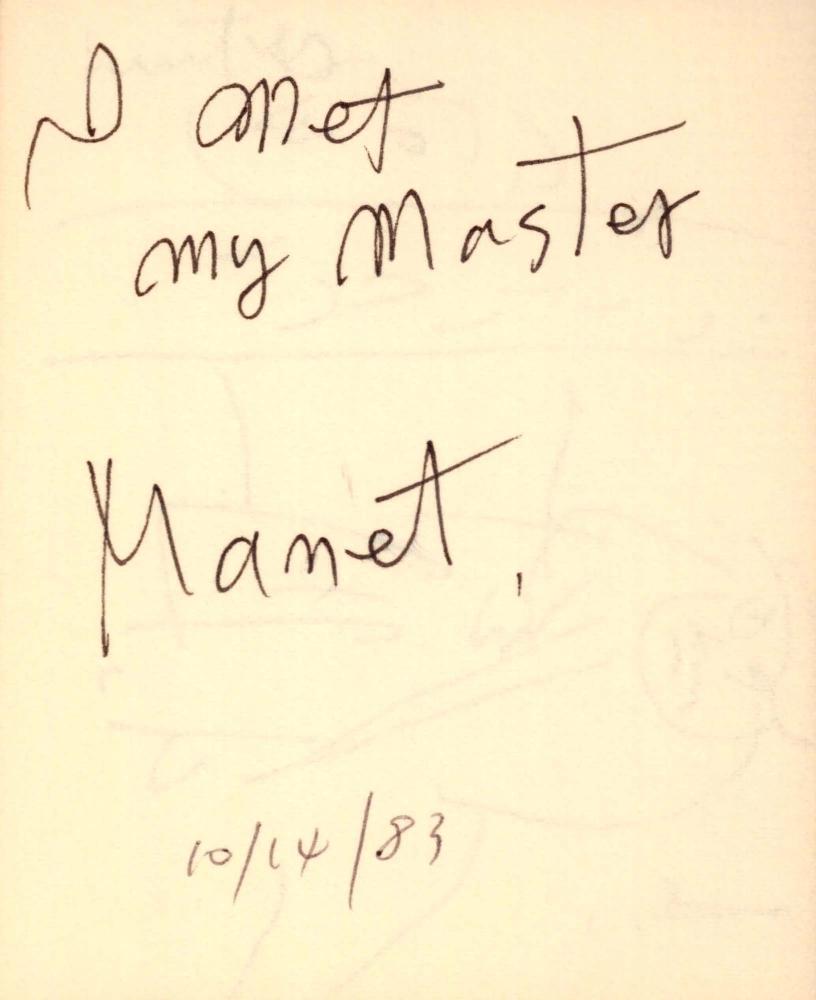 I met
my Master
Manet.
10/14/83